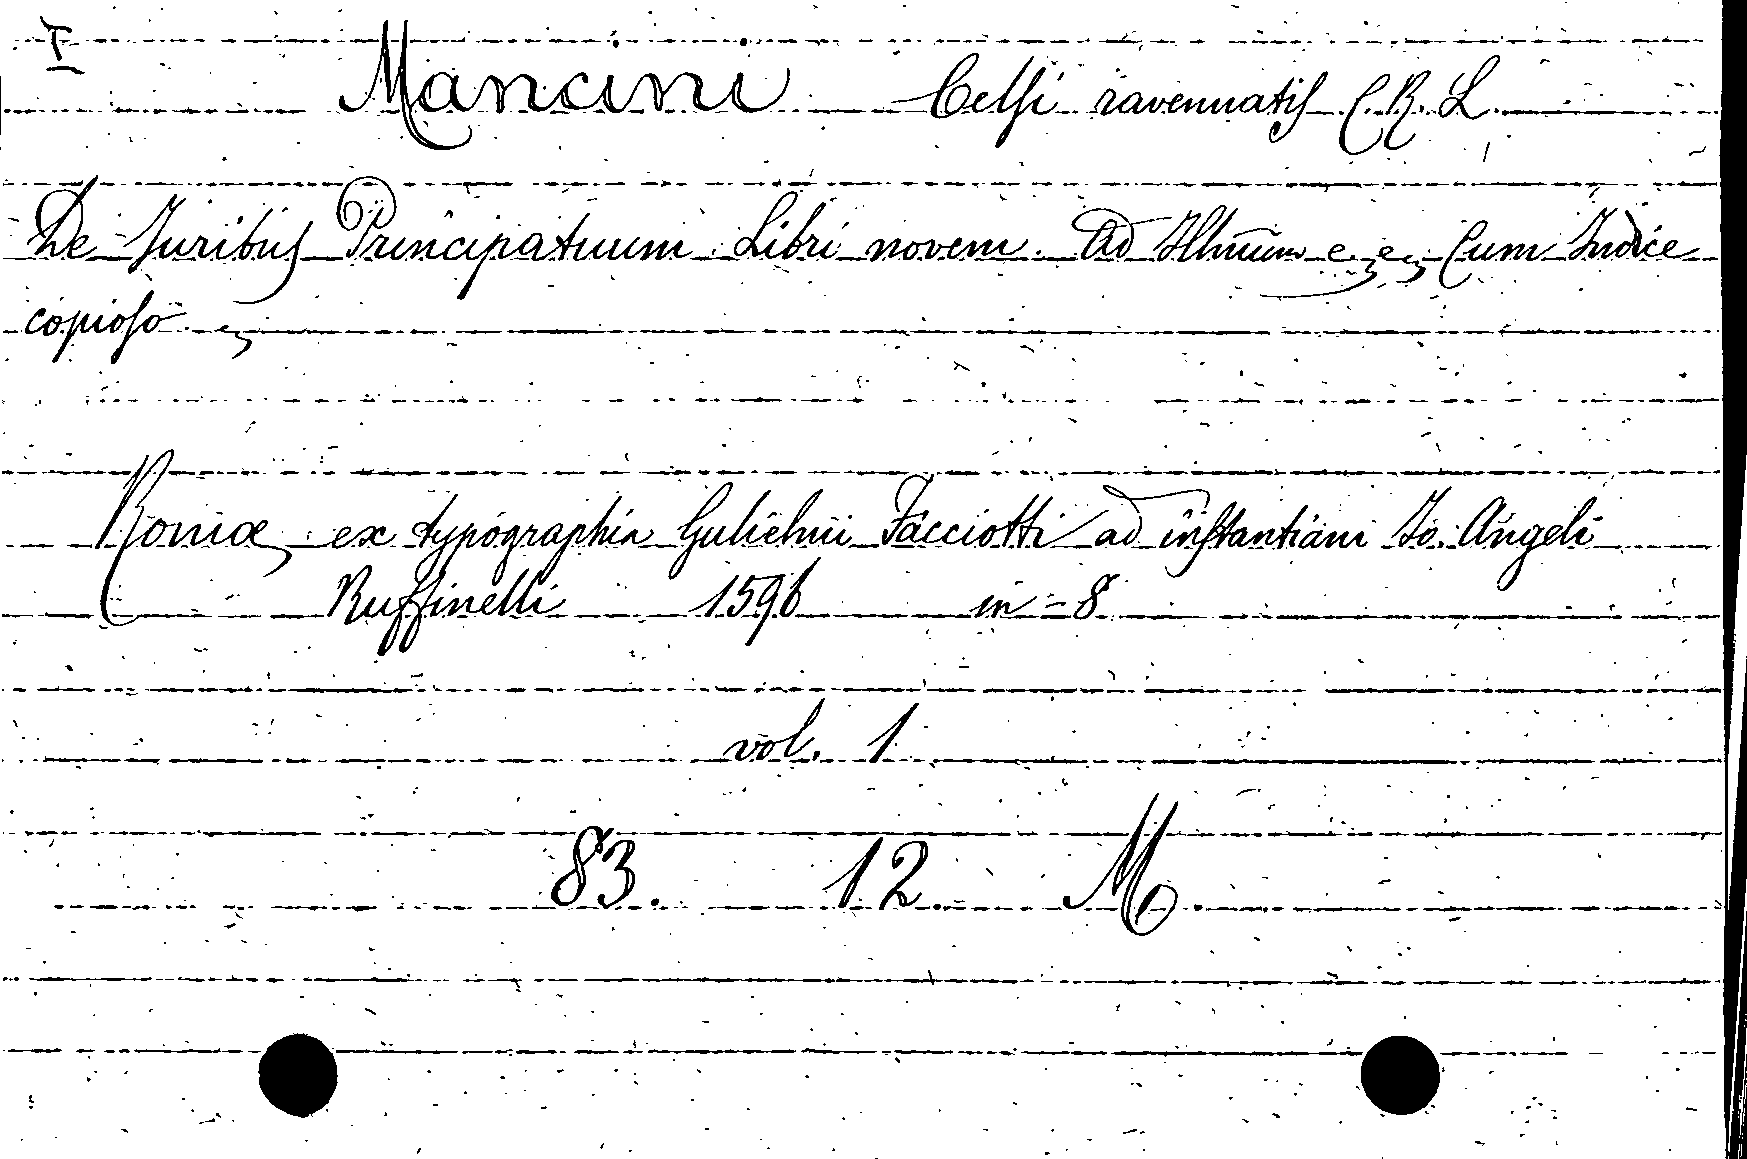 I
Mancini Celsi ravennatis C. R. L.
De Juribus Principatuum Libri novem. Ad Illmum e. e. Cum Indice
copioso.
Romæ, ex typographia Gulielmi Facciotti ad instantiam Jo. Angeli
Ruffinelli 1596 in-8
vol. 1
83. 12. M.